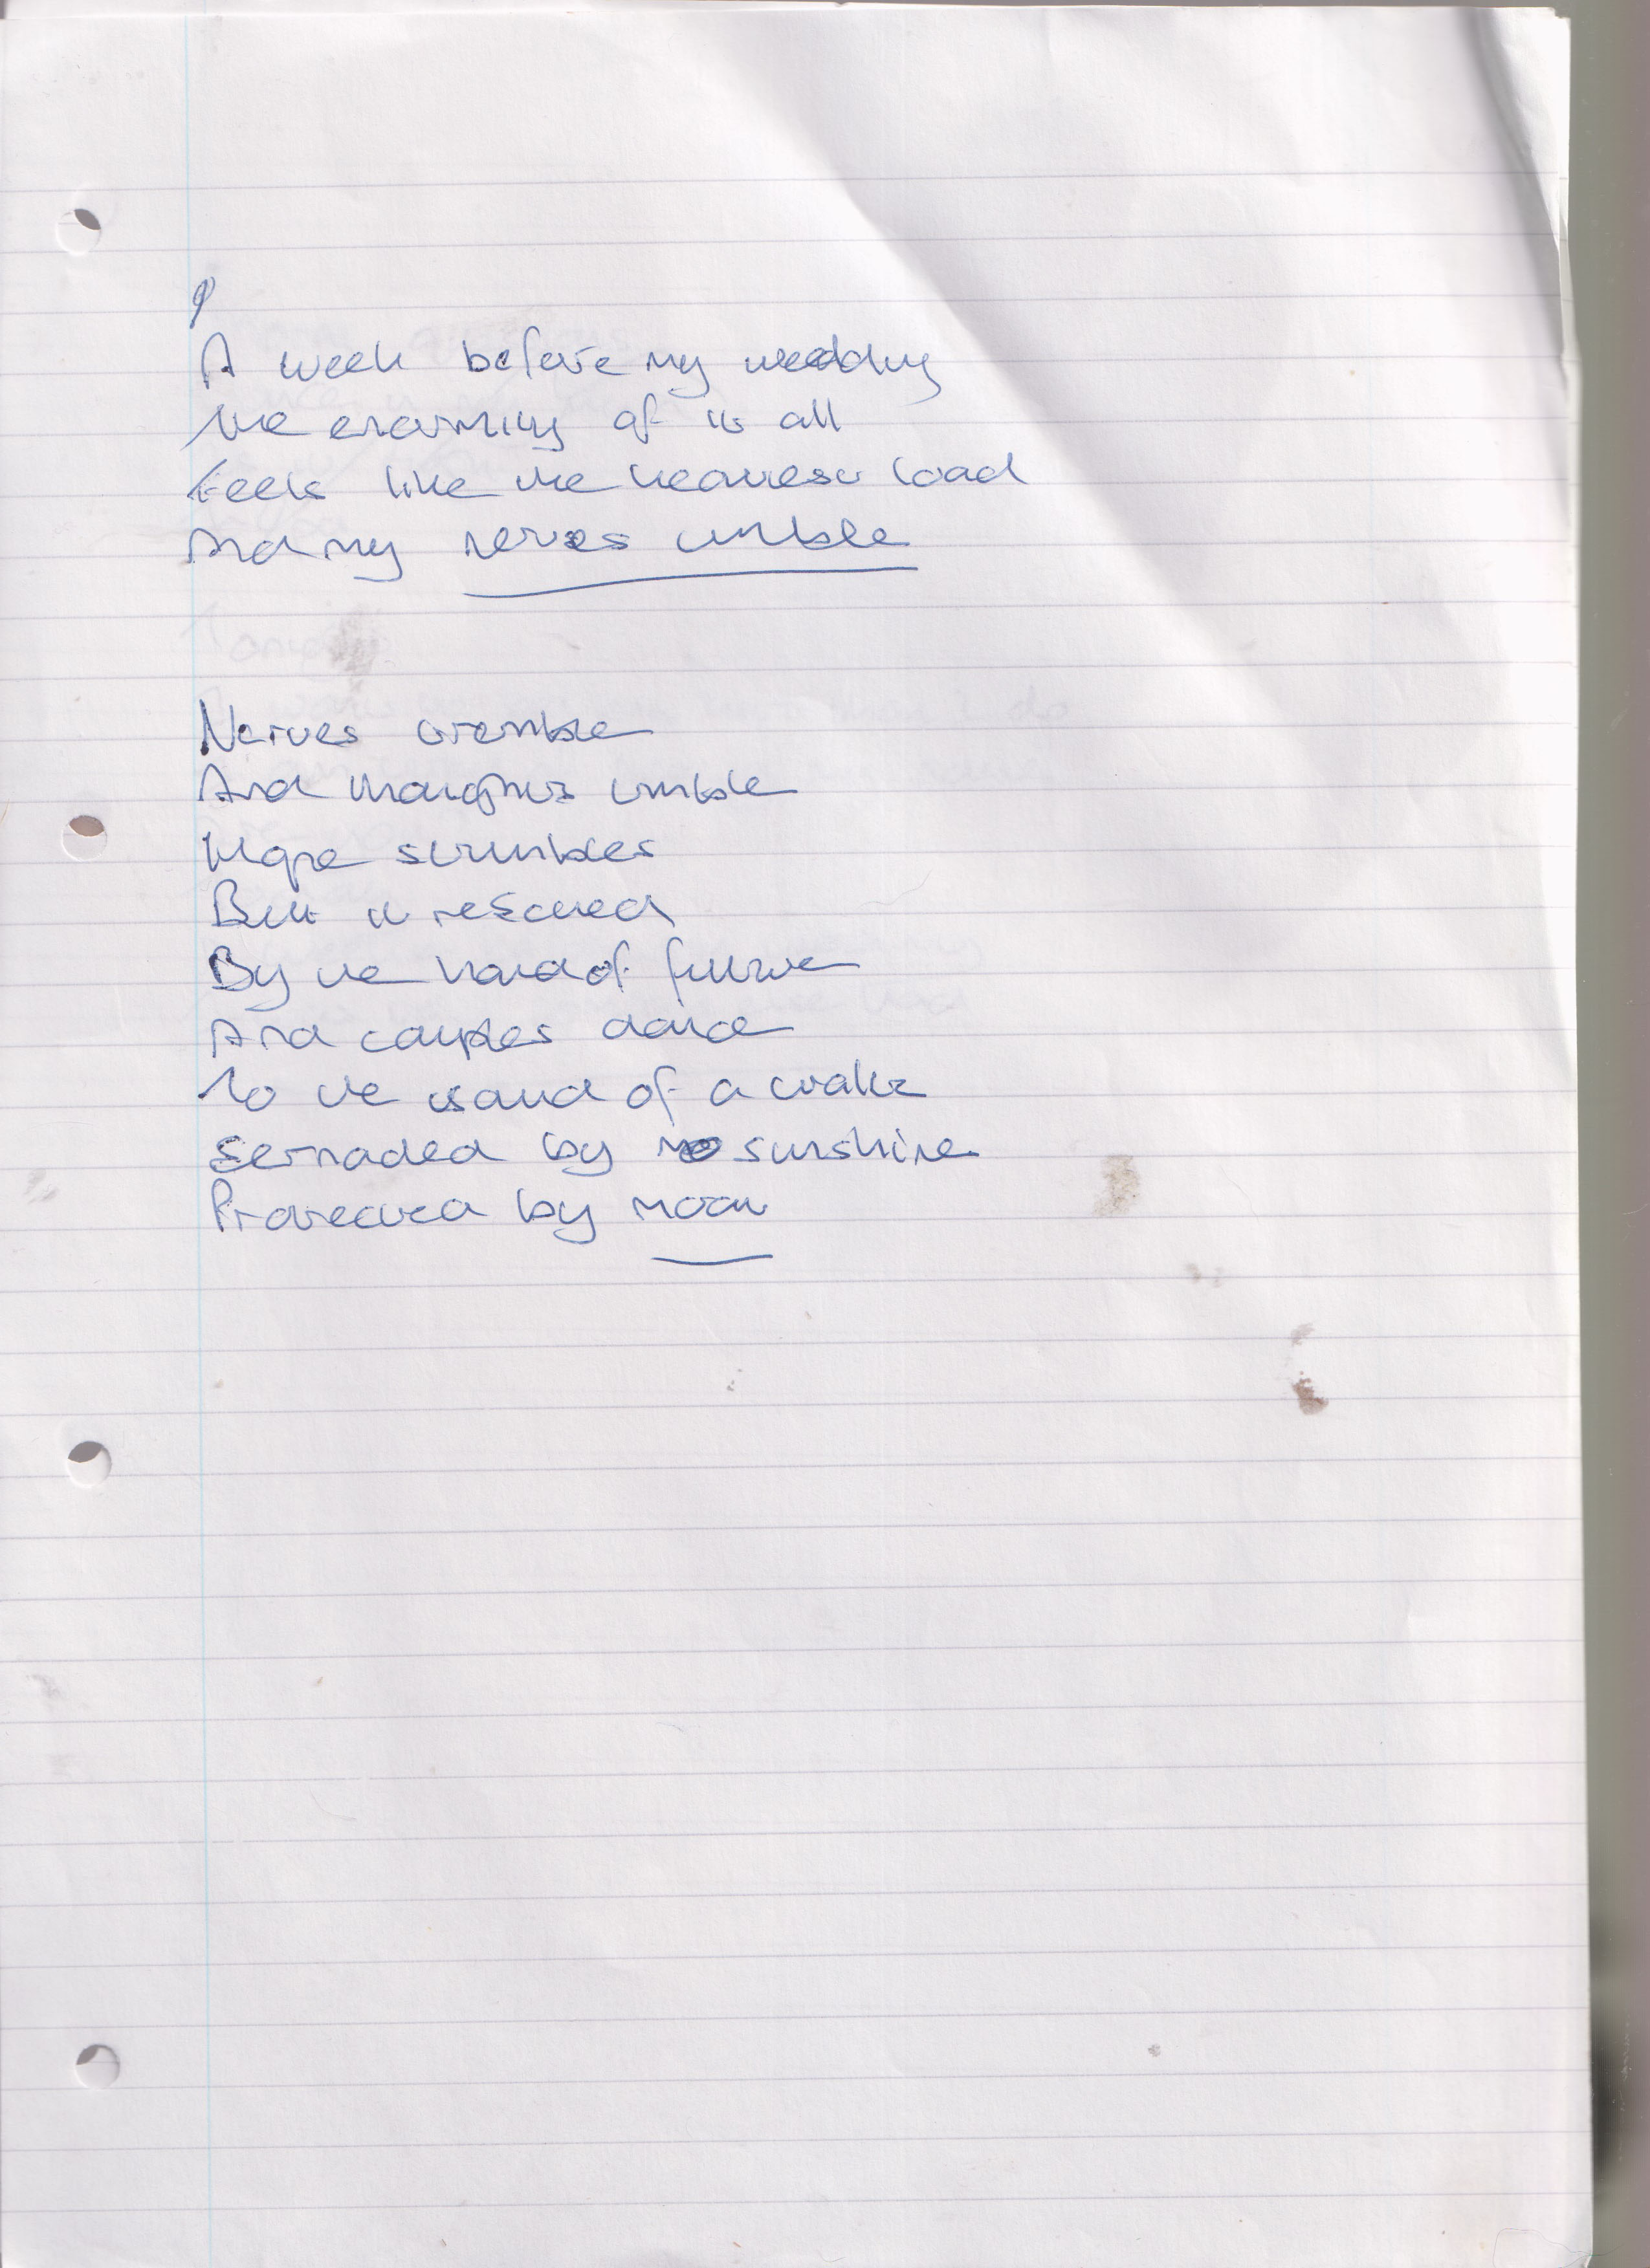 A week before my wedding
The enormity of it all
Feels like the heaviest load
And my nerves tumble
Nerves tremble
And thoughts tumble
Hope stumbles
But is rescued
By the hand of future
And couples dance
To the sound of a waltz
Sernaded by sunshine
Protected by moon